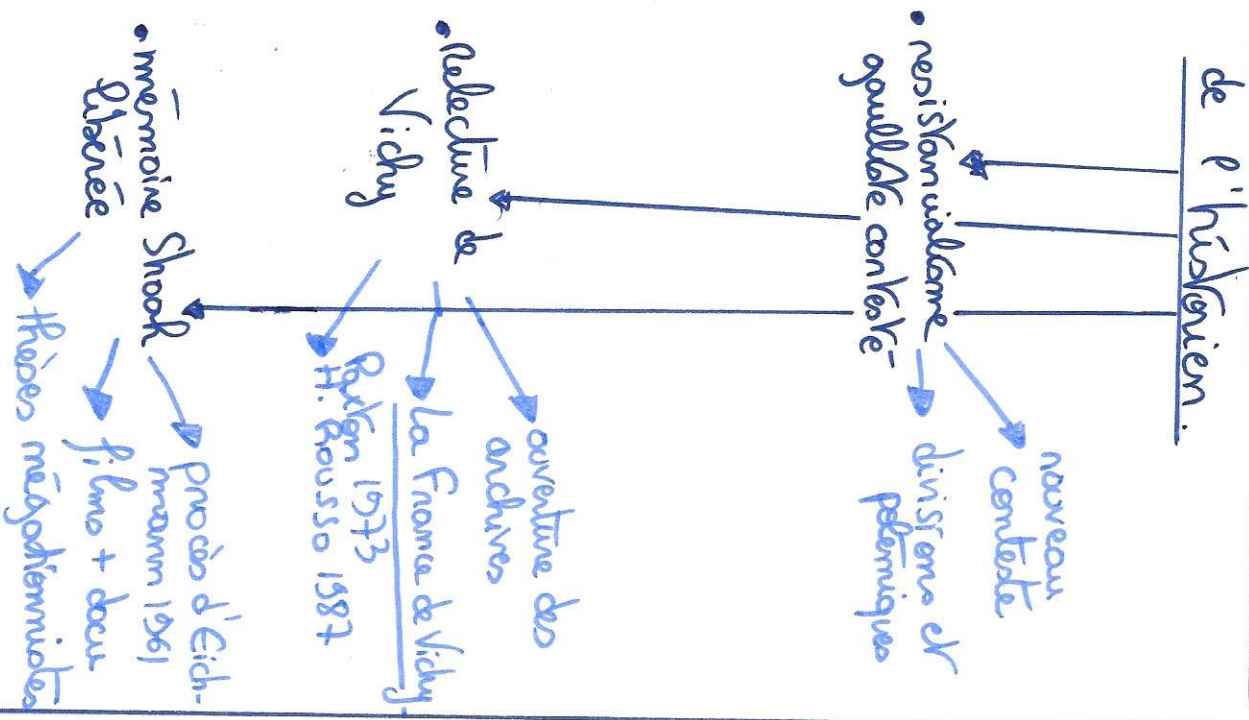 de l'historien.
• resistancialisme
gaulliste contesté
nouveau
contexte
divisions et
polémiques
• Relecture de
Vichy
ouverture des
archives
La France de Vichy,
Paxton 1973
H. Rousso 1987
• mémoire Shoah
libérée
procès d'Eich-
mann 1961
films + docu
thèses négationnistes